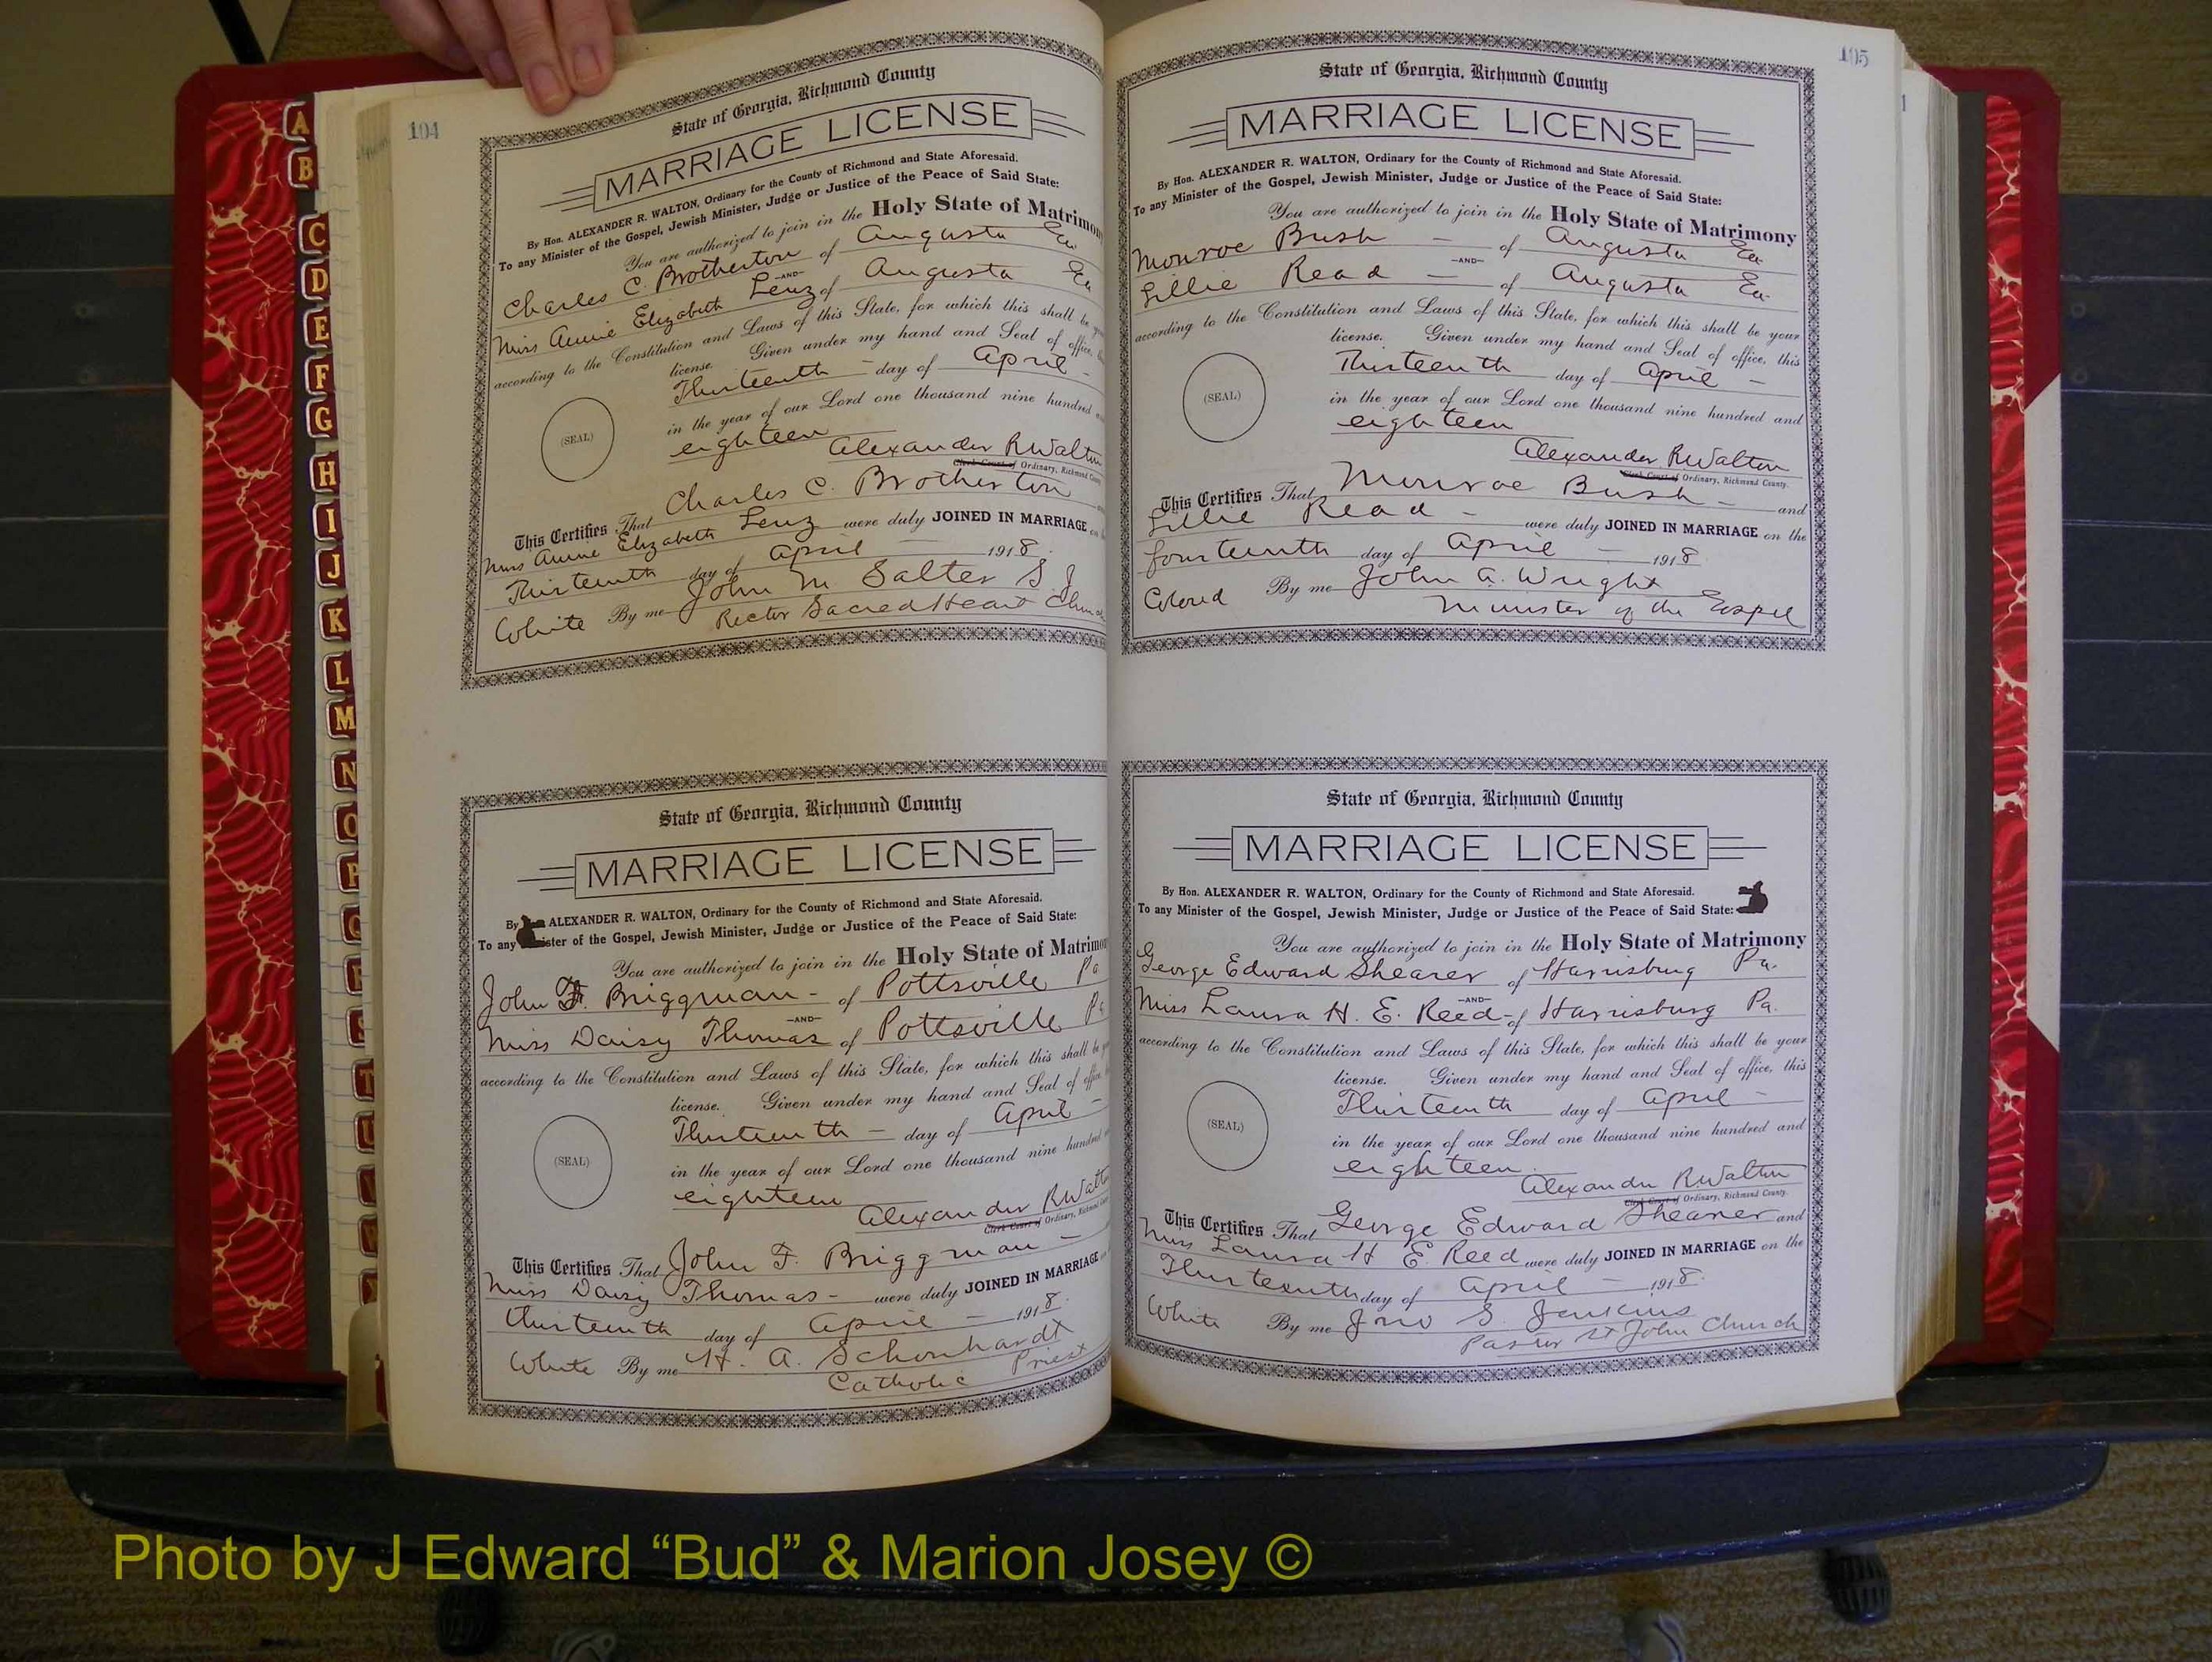 104
State of Georgia, Richmond County
MARRIAGE LICENSE
By Hon. ALEXANDER R. WALTON, Ordinary for the County of Richmond and State Aforesaid.
To any Minister of the Gospel, Jewish Minister, Judge or Justice of the Peace of Said State:
You are authorized to join in the Holy State of Matrimony
Charles C. Brotherton of Augusta Ga
—AND—
Miss Annie Elizabeth Lenz of Augusta Ga
according to the Constitution and Laws of this State, for which this shall be
license. Given under my hand and Seal of office,
Thirteenth – day of April –
in the year of our Lord one thousand nine hundred
eighteen
(SEAL)
Alexander R Walton
Clerk Court of Ordinary, Richmond County
This Certifies That Charles C. Brotherton
Miss Annie Elizabeth Lenz were duly JOINED IN MARRIAGE on
Thirteenth day of April – 1918.
White By me John M Salter S. J.
Rector Sacred Heart Church
State of Georgia, Richmond County
MARRIAGE LICENSE
By ALEXANDER R. WALTON, Ordinary for the County of Richmond and State Aforesaid.
To any ister of the Gospel, Jewish Minister, Judge or Justice of the Peace of Said State:
You are authorized to join in the Holy State of Matrimo
John F. Briggman – of Pottsville Pa
—AND—
Miss Daisy Thomas of Pottsville Pa
according to the Constitution and Laws of this State, for which this shall be
license. Given under my hand and Seal of office
Thirteenth – day of April –
in the year of our Lord one thousand nine hundred
eighteen
(SEAL)
Alexander R Walton
Clerk Court of Ordinary, Richmond
This Certifies That John F. Briggman –
Miss Daisy Thomas – were duly JOINED IN MARRIAGE
thirteenth day of April – 1918.
White By me H. A. Schonhardt
Catholic Priest
105
State of Georgia, Richmond County
MARRIAGE LICENSE
By Hon. ALEXANDER R. WALTON, Ordinary for the County of Richmond and State Aforesaid.
To any Minister of the Gospel, Jewish Minister, Judge or Justice of the Peace of Said State:
You are authorized to join in the Holy State of Matrimony
Monroe Bush – of Augusta Ga
—AND—
Lillie Read – of Augusta Ga.
according to the Constitution and Laws of this State, for which this shall be your
license. Given under my hand and Seal of office, this
Thirteenth day of April –
in the year of our Lord one thousand nine hundred and
eighteen
(SEAL)
Alexander R Walton
Clerk Court of Ordinary, Richmond County.
This Certifies That Monroe Bush – and
Lillie Read – were duly JOINED IN MARRIAGE on the
fourteenth day of April – 1918.
Colored By me John A. Wright
Minister of the Gospel
State of Georgia, Richmond County
MARRIAGE LICENSE
By Hon. ALEXANDER R. WALTON, Ordinary for the County of Richmond and State Aforesaid.
To any Minister of the Gospel, Jewish Minister, Judge or Justice of the Peace of Said State:
You are authorized to join in the Holy State of Matrimony
George Edward Shearer of Harrisburg Pa.
—AND—
Miss Laura H. E. Reed – of Harrisburg Pa.
according to the Constitution and Laws of this State, for which this shall be your
license. Given under my hand and Seal of office, this
Thirteenth day of April –
in the year of our Lord one thousand nine hundred and
eighteen.
(SEAL)
Alexander R Walton
Clerk Court of Ordinary, Richmond County.
This Certifies That George Edward Shearer and
Miss Laura H E. Reed were duly JOINED IN MARRIAGE on the
Thirteenth day of April – 1918.
White By me Jno S. Jenkins
Pastor St John Church
A
B
C
D
E
F
G
H
I
J
K
L
M
N
O
P
Q
R
S
T
U
V
W
Photo by J Edward “Bud” & Marion Josey ©